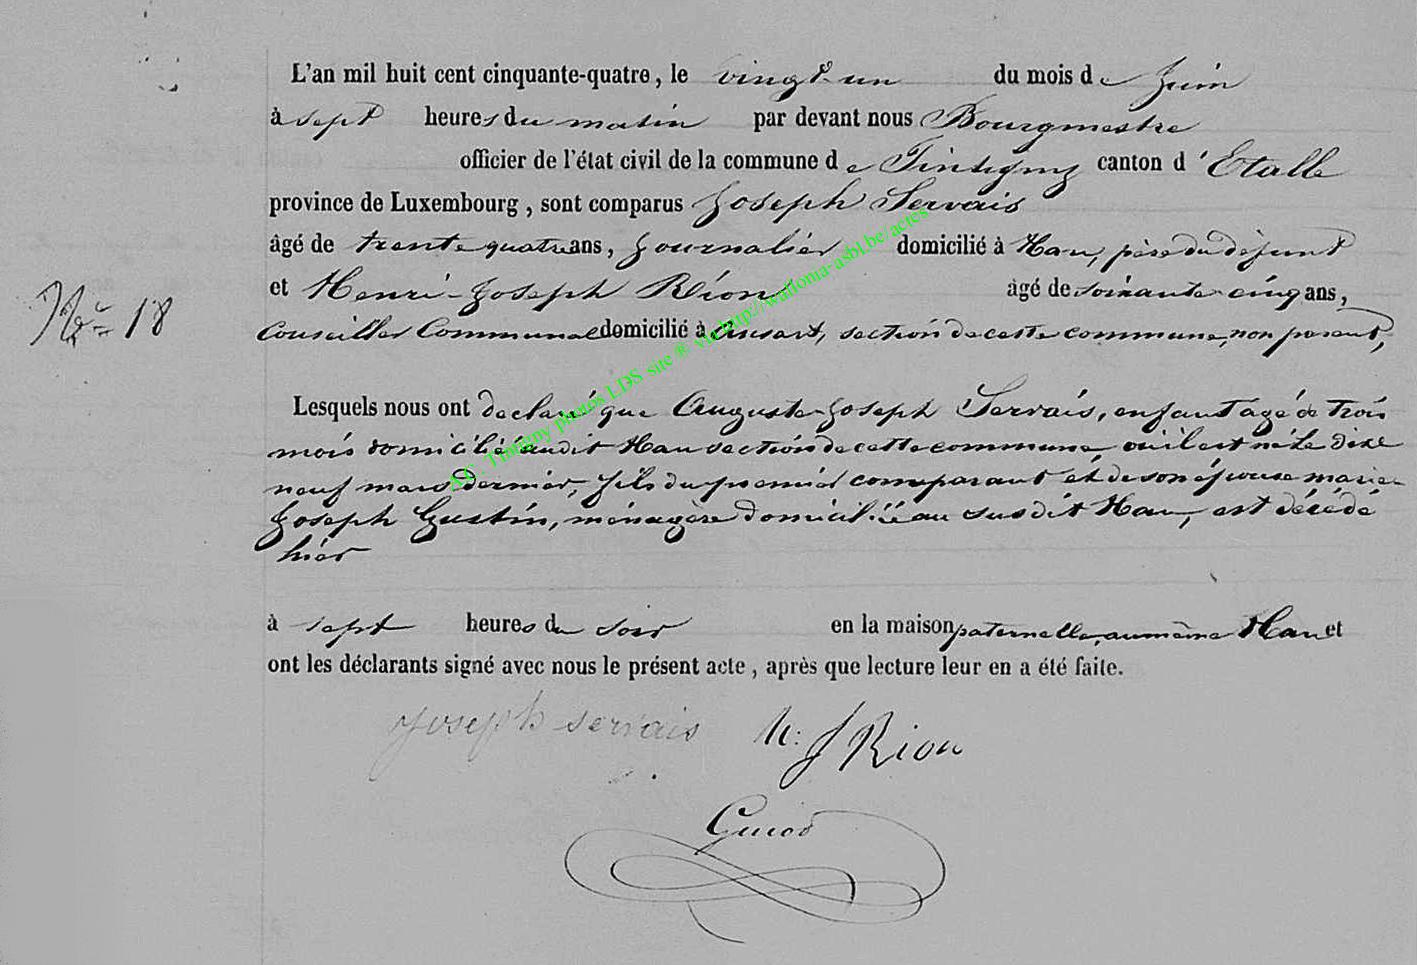 L'an mil huit cent cinquante-quatre, le vingt un du mois de Juin
à sept heures du matin par devant nous Bourgmestre
officier de l'état civil de la commune de Tintigny canton d'Etalle
province de Luxembourg, sont comparus Joseph Servais
âgé de trente quatre ans, Journalier domicilié à Han, père du défunt
et Henri-Joseph Rion âgé de soixante cinq ans,
N° 18
Conseiller Communal domicilié à Ansart, section de cette commune, non parent,
Lesquels nous ont déclaré que Auguste-Joseph Servais, enfant agé de trois
mois domicilié audit Han section de cette commune où il est né le dixe
neuf mars dernier, fils du premier comparant et de son épouse marie
Joseph Gustin, ménagère domiciliée au susdit Han, est décédé
hier
à sept heures du soir en la maison paternelle, au même Han et
ont les déclarants signé avec nous le présent acte, après que lecture leur en a été faite.
Joseph Servais H: J Rion
A.C. Tintigny photos LDS site ® via http://wallonia-asbl.be/actes